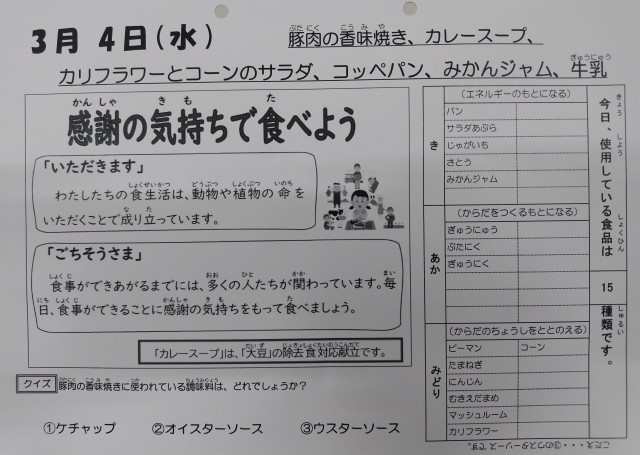 3月 4日(水)
豚肉の香味焼き、カレースープ、
カリフラワーとコーンのサラダ、コッペパン、みかんジャム、牛乳
感謝の気持ちで食べよう
「いただきます」
わたしたちの食生活は、動物や植物の命を
いただくことで成り立っています。
「ごちそうさま」
食事ができあがるまでには、多くの人たちが関わっています。毎
日、食事ができることに感謝の気持ちをもって食べましょう。
「カレースープ」は、「大豆」の除去食対応献立です。
クイズ 豚肉の香味焼きに使われている調味料は、どれでしょうか?
①ケチャップ ②オイスターソース ③ウスターソース
き
(エネルギーのもとになる)
パン
サラダあぶら
じゃがいも
さとう
みかんジャム
あか
(からだをつくるもとになる)
ぎゅうにゅう
ぶたにく
ぎゅうにく
みどり
(からだのちょうしをととのえる)
ピーマン コーン
たまねぎ
にんじん
むきえだまめ
マッシュルーム
カリフラワー
今日、使用している食品は
15
種類です。
こたえ・・・③のウスターソースです。